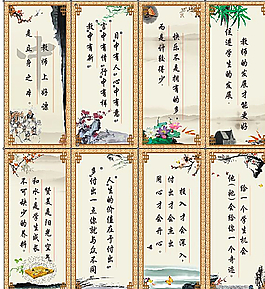 教师上好课
立身之本
目中有人 心中有意
言中有情 行中有样
教中有新
快乐不是拥有的多
而是计较得少
教师的发展才能更好
促进学生的发展
赞美是阳光、空气
和水，是学生成长
不可缺少的养料
人生的价值在于付出
多付出一点你就与众不同
投入才会深入
付出才会杰出
用心才会开心
给一个学生机会
他(她)会给你一个奇迹